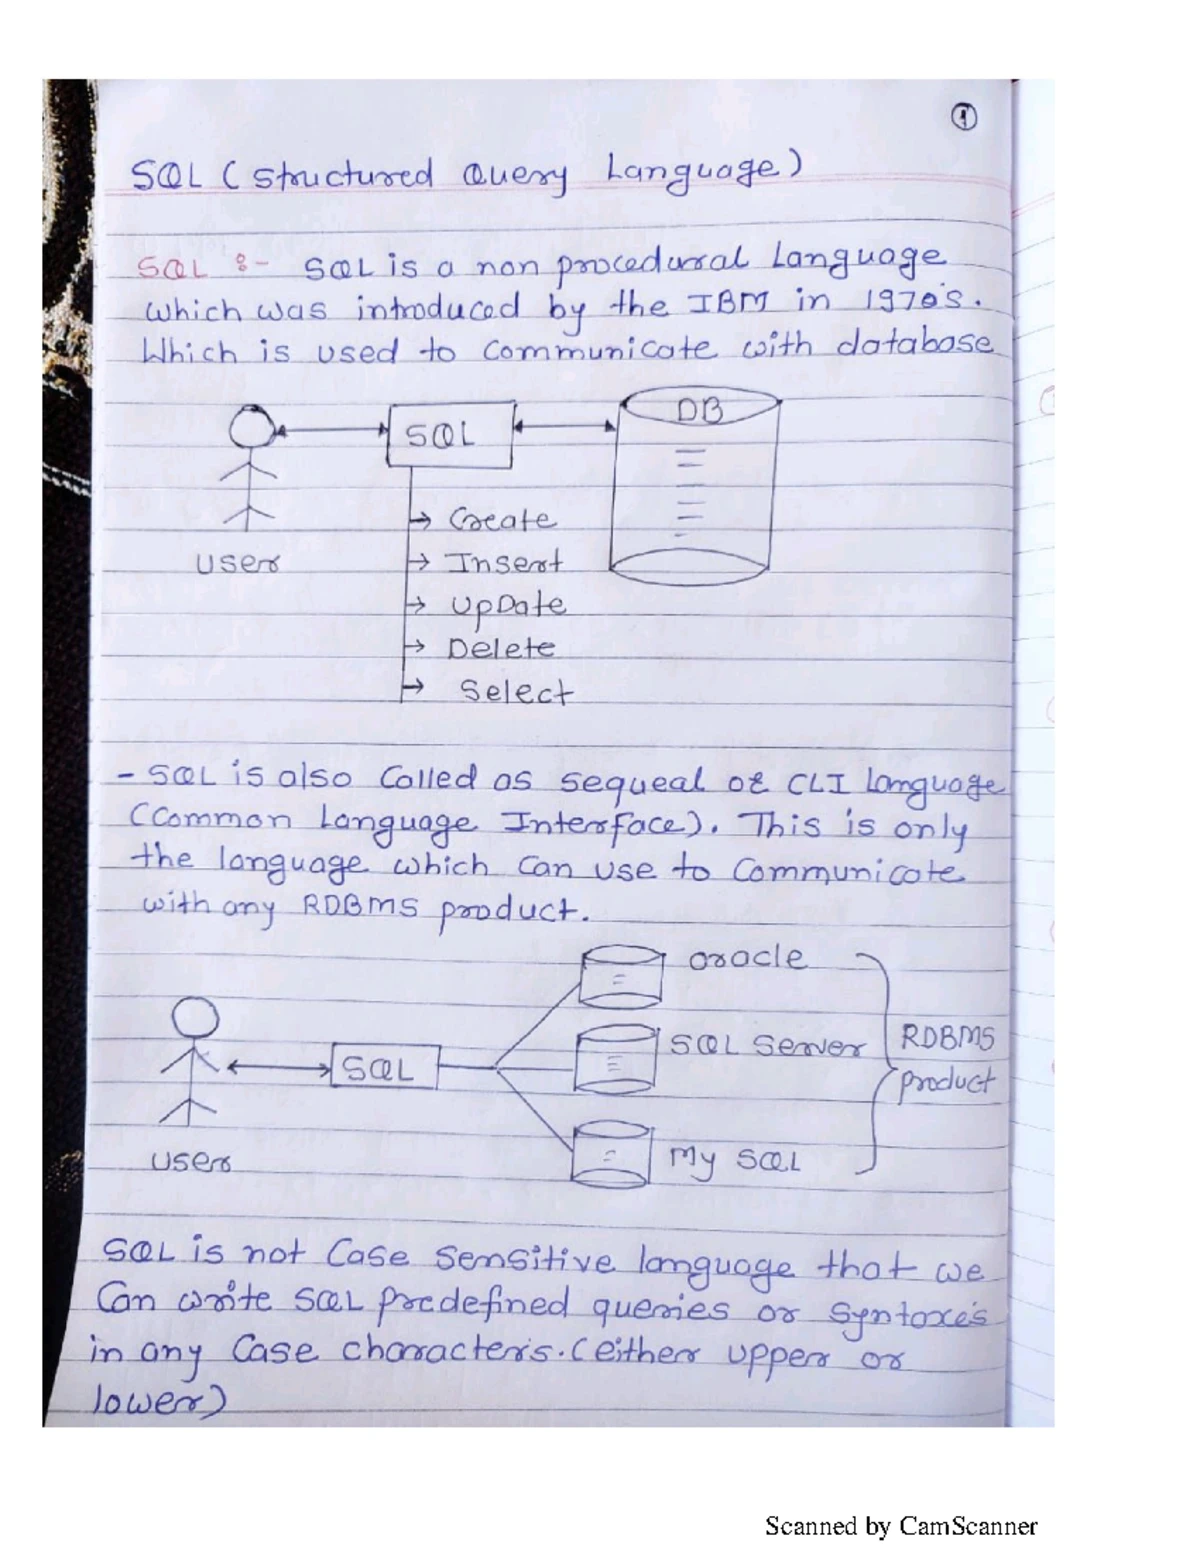 1
SQL (Structured Query Language)
SQL :- SQL is a non procedural Language
which was introduced by the IBM in 1970's.
Which is used to Communicate with database
DB
SQL
Create
User
Insert
UpDate
Delete
Select
- SQL is also Called as sequeal or CLI Language
(Common Language Interface). This is only
the language which Can use to Communicate
with any RDBMS product.
Oracle
SQL Server
RDBMS
product
SQL
My SQL
User
SQL is not Case Sensitive language that we
Can write SQL predefined queries or Syntaxe's
in any Case characters. (either upper or
lower)
Scanned by CamScanner